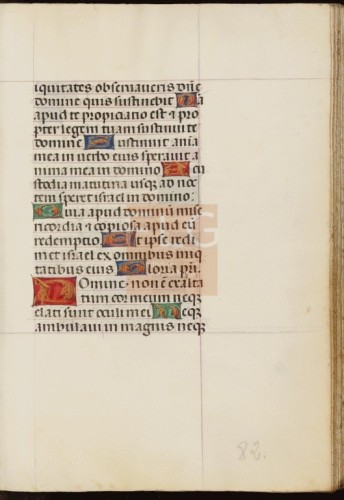 iquitates observaveris dñe
domine quis sustinebit Quia
apud te propiciatio est ⁊ pro
pter legem tuam sustinui te
domine Sustinuit ani
mea in verbo eius speravit a
nima mea in domino A cu
stodia matutina usque ad noc
tem speret israel in domino:
Quia apud dominū mise
ricordia ⁊ copiosa apud eū
redemptio Et ipse redi
met israel ex omnibus iniq
tatibus eius Gloria pri.
Domine non ē exalta
tum cor meum neq
elati sunt oculi mei Neq
ambulavi in magnis neq
82.